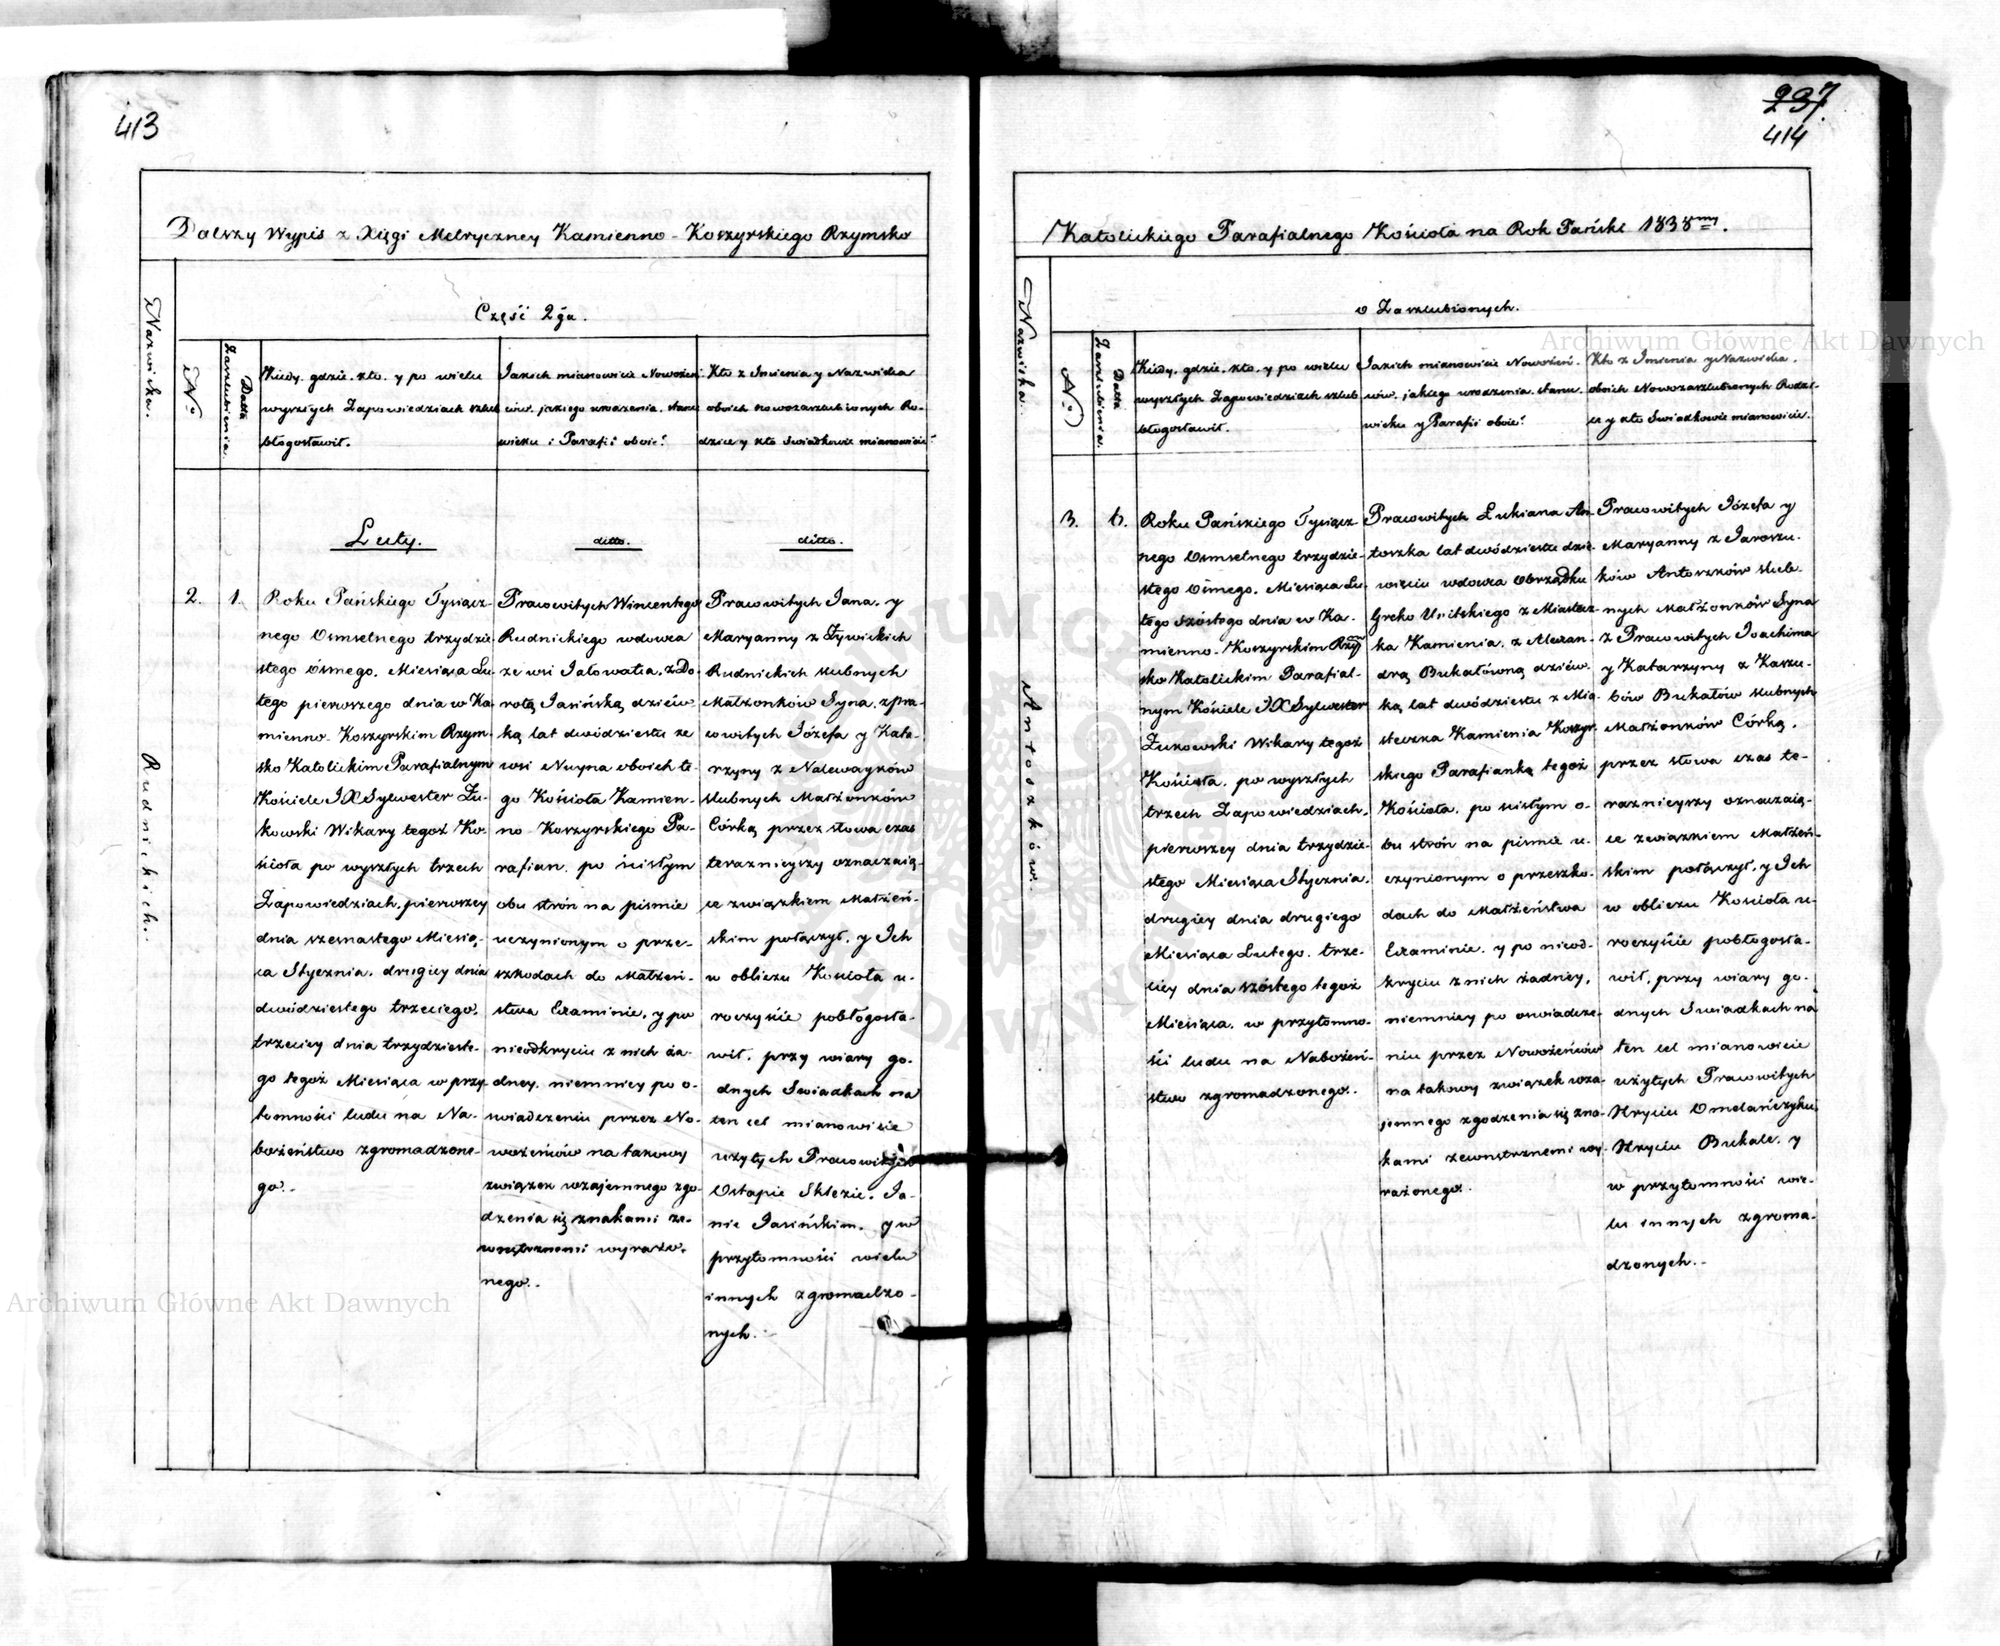 413
Dalszy Wypis z Xięgi Metryczney Kamienno-Koszyrskiego Rzymsko
Nazwiska.
Część 2ga.
No
Datta Zaszlubienia.
Kiedy, gdzie, kto, y po wielu
wyszłych Zapowiedziach szlub
błogosławił.
Jakich mianowicie Nowożeń-
ców, jakiego urodzenia, stanu
wieku i Parafii oboie?
Kto z Imienia y Nazwiska
oboich nowozaszlubionych Ro-
dzice y kto Swiadkowie mianowicie?
Luty.
ditto.
ditto.
Rudnickich.
2.
1.
Roku Pańskiego Tysiącz-
nego Osmsetnego trzydzie-
stego ósmego, Miesiąca Lu-
tego pierwszego dnia w Ka-
mienno-Koszyrskim Rzym-
sko Katolickim Parafialnym
Kościele JX Sylwester Żu-
kowski Wikary tegoż Ko-
ścioła po wyszłych trzech
Zapowiedziach, pierwszey
dnia szesnastego Miesią-
ca Stycznia, drugiey dnia
dwódziestego trzeciego,
trzeciey dnia trzydzieste-
go tegoż Miesiąca w przy-
tomności ludu na Na-
bożeństwo zgromadzone-
go.
Pracowitych Wincentego
Rudnickiego wdowca
ze wsi Jałowatia, z Do-
rotą Jasińską dziew-
ką lat dwódziestu ze
wsi Nuyna oboich te-
go Kościoła Kamien-
no-Koszyrskiego Pa-
rafian, po ścisłym
obu strón na pismie
uczynionym o prze-
szkodach do Małżeń-
stwa Examinie, y po
nieodkryciu z nich ża-
dney, niemniey po o-
swiadczeniu przez No-
wożeńców na takowy
związek wzajemnego zgo-
dzenia się znakami ze-
wnętrznemi wyrażo-
nego.
Pracowitych Jana, y
Maryanny z Żywickich
Rudnickich slubnych
Małżonków Syna, z pra-
cowitych Józefa y Kata-
rzyny z Nalewayków
slubnych Małżonków
Córką przez słowa czas
teraznieyszy oznaczaią-
ce związkiem Małżeń-
skim połączył, y Ich
w obliczu Kościoła u-
roczyście pobłogosła-
wił, przy wiary go-
dnych Swiadkach na
ten cel mianowicie
użytych Pracowitych
Ostapie Sklezie, Ja-
nie Jasińskim, y w
przytomności wielu
innych zgromadzo-
nych.
237
414
Katolickiego Parafialnego Kościoła na Rok Pański 1838my.
Nazwiska.
o Zaszlubionych.
No
Datta Zaszlubienia.
Kiedy, gdzie, kto, y po wielu
wyszłych Zapowiedziach szlub
błogosławił.
Jakich mianowicie Nowożeń-
ców, jakiego urodzenia, stanu,
wieku y Parafii oboie?
Kto z Imienia y Nazwiska,
oboich Nowozaszlubionych Rodzi-
ce y kto Swiadkowie mianowicie.
Antoszków.
3.
6.
Roku Pańskiego Tysiącz-
nego Osmsetnego trzydzie-
stego ósmego, Miesiąca Lu-
tego szóstego dnia w Ka-
mienno-Koszyrskim Rzym-
sko Katolickim Parafial-
nym Kościele JX Sylwester
Żukowski Wikary tegoż
Kościoła, po wyszłych
trzech Zapowiedziach,
pierwszey dnia trzydzie-
stego Miesiąca Stycznia,
drugiey dnia drugiego
Miesiąca Lutego, trze-
ciey dnia szóstego tegoż
Miesiąca, w przytomno-
ści ludu na Nabożeń-
stwo zgromadzonego.
Pracowitych Łukiana An-
toszka lat dwódziestu dzie-
więciu wdowca Obrządku
Greko Unitskiego z Miastecz-
ka Kamienia, z Alexan-
drą Bukałówną dziew-
ką lat dwódziestu z Mia-
steczka Kamienia Koszyr-
skiego Parafianką tegoż
Kościoła, po ścisłym o-
bu strón na pismie u-
czynionym o przeszko-
dach do Małżeństwa
Examinie, y po nieod-
kryciu z nich żadney,
niemniey po oswiadcze-
niu przez Nowożeńców
na takowy związek wza-
jemnego zgodzenia się zna-
kami zewnętrznemi wy-
rażonego.
Pracowitych Józefa y
Maryanny z Jaroszu-
ków Antoszków slub-
nych Małżonków Syna
z Pracowitych Joachima
y Katarzyny z Kaszu-
bów Bukałów slubnych
Małżonków Córką,
przez słowa czas te-
raznieyszy oznaczaią-
ce związkiem Małżeń-
skim połączył, y Ich
w obliczu Kościoła u-
roczyście pobłogosła-
wił, przy wiary go-
dnych Swiadkach na
ten cel mianowicie
użytych Pracowitych
Hryciu Omelańczyku,
Hryciu Bukale, y
w przytomności wie-
lu innych zgroma-
dzonych.
Archiwum Główne Akt Dawnych
Archiwum Główne Akt Dawnych